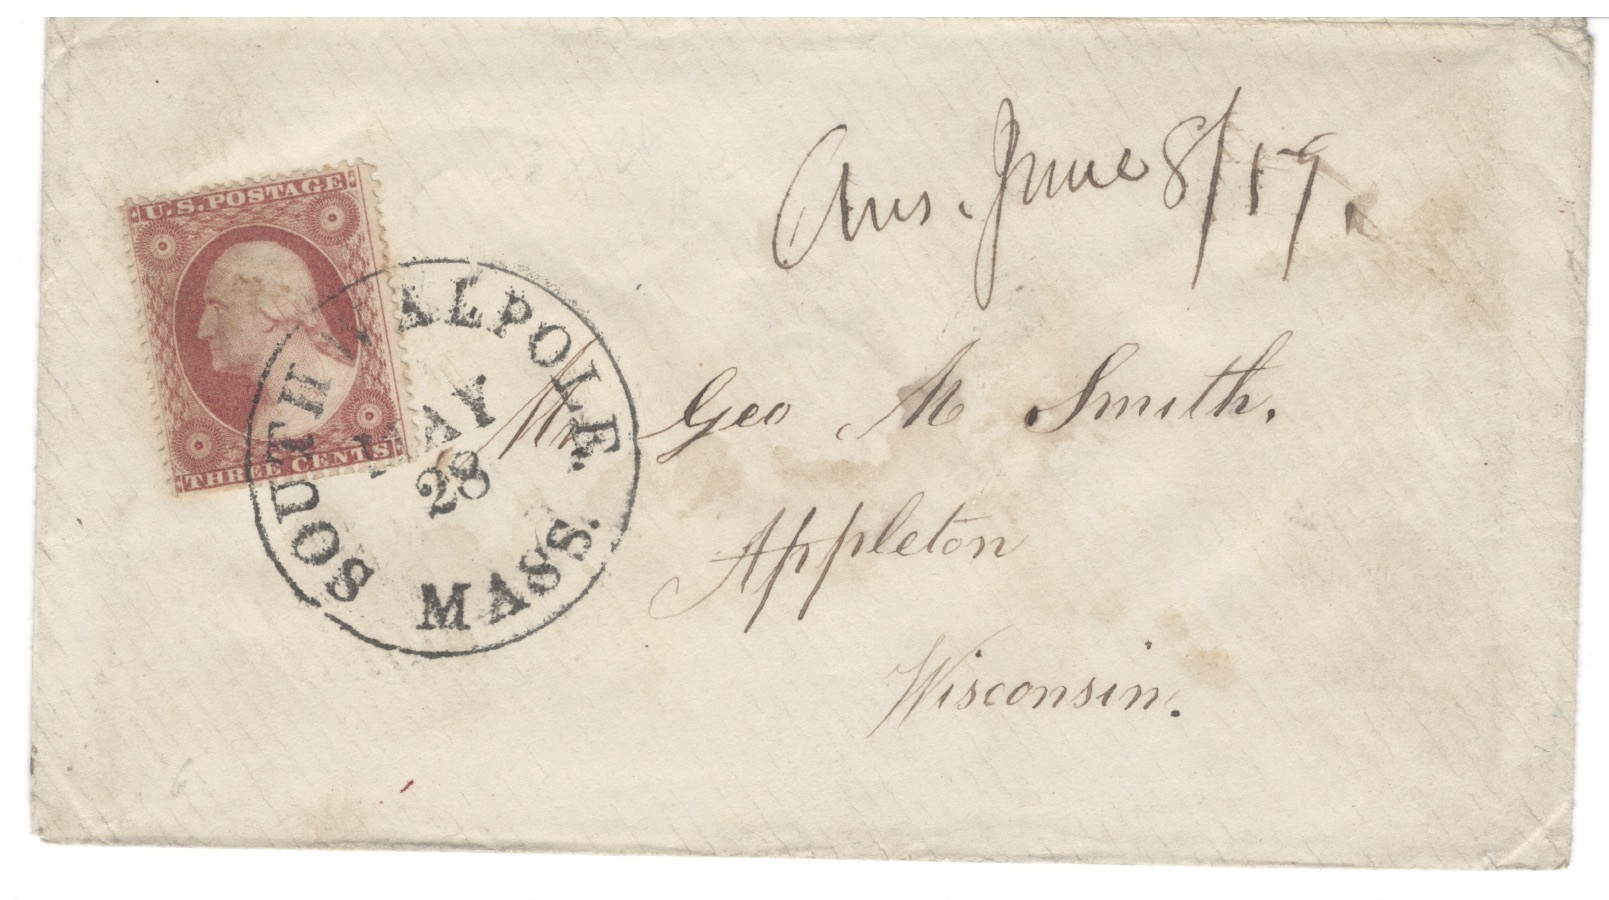 Ans. June 8/59.
U.S. POSTAGE
THREE CENTS
SOUTH WALPOLE. MASS.
MAY
28
Mr Geo M Smith.
Appleton
Wisconsin.